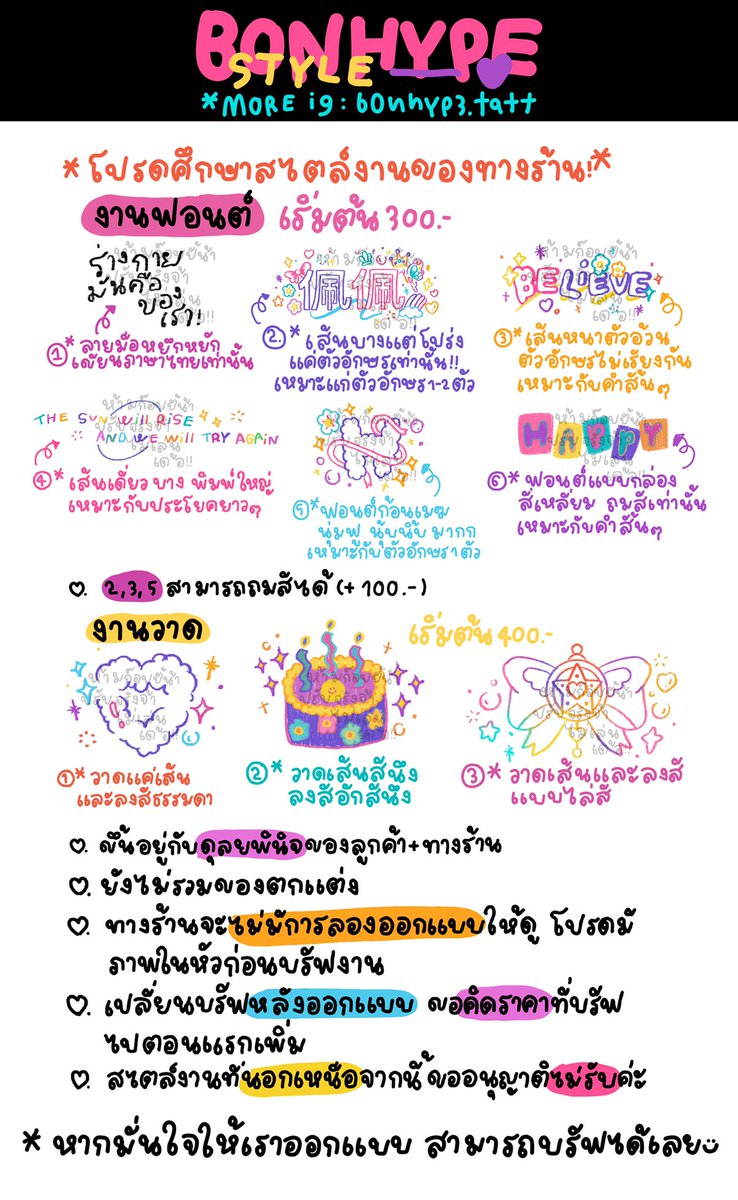 BONHYPE
STYLE
*MORE ig : b0nhyp3.tatt
*โปรดศึกษาสไตล์งานของทางร้าน!*
งานฟอนต์ เริ่มต้น 300.-
ร่างกาย
มันคือ
ของ
เรา!
①*ลายมือหยึกหยัก
เขียนภาษาไทยเท่านั้น
佩佩
②*เส้นบางแต่โปร่ง
แค่ตัวอักษรเท่านั้น!!
เหมาะแก่ตัวอักษร1-2ตัว
BELIEVE
③*เส้นหนาตัวอ้วน
ตัวอักษรไม่เรียงกัน
เหมาะกับคำสั้นๆ
THE SUN WILL RISE
AND WE WILL TRY AGAIN
④*เส้นเดี่ยว บาง พิมพ์ใหญ่
เหมาะกับประโยคยาวๆ
⑤*ฟอนต์ก้อนเมฆ
นุ่มฟู นุ้บนิ้บ มากก
เหมาะกับตัวอักษร1ตัว
HAPPY
⑥*ฟอนต์แบบกล่อง
สี่เหลี่ยม ถมสีเท่านั้น
เหมาะกับคำสั้นๆ
♡. 2,3,5 สามารถถมสีได้ (+100.-)
งานวาด เริ่มต้น 400.-
ห้ามก๊อบย้ำ
ปรับจริงจ้า
ไม่เล่น
เด้อ!!
①*วาดแค่เส้น
และลงสีธรรมดา
②*วาดเส้นสีนึง
ลงสีอีกสีนึง
③*วาดเส้นและลงสี
แบบไล่สี
♡. ขึ้นอยู่กับดุลยพินิจของลูกค้า+ทางร้าน
♡. ยังไม่รวมของตกแต่ง
♡. ทางร้านจะไม่มีการลองออกแบบให้ดู โปรดมี
ภาพในหัวก่อนบรีฟงาน
♡. เปลี่ยนบรีฟหลังออกแบบ ขอคิดราคาที่บรีฟ
ไปตอนแรกเพิ่ม
♡. สไตล์งานที่นอกเหนือจากนี้ ขออนุญาติไม่รับค่ะ
* หากมั่นใจให้เราออกแบบ สามารถบรีฟได้เลย